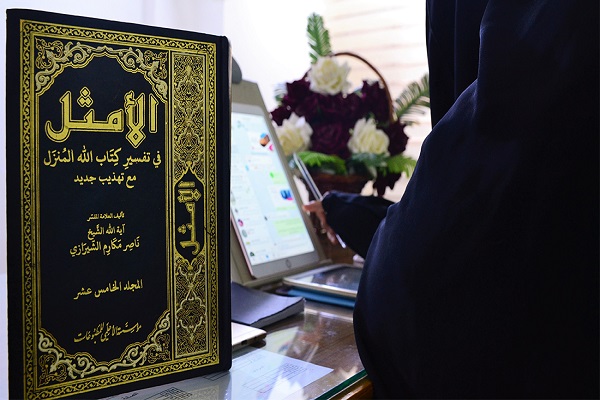 الأمثل
في تفسير كتاب الله المنزل
مع تهذيب جديد
تأليف العلامة المفسر
آية الله الشيخ
ناصر مكارم الشيرازي
المجلد الخامس عشر
مؤسسة الأعلمي للمطبوعات
الأمثل